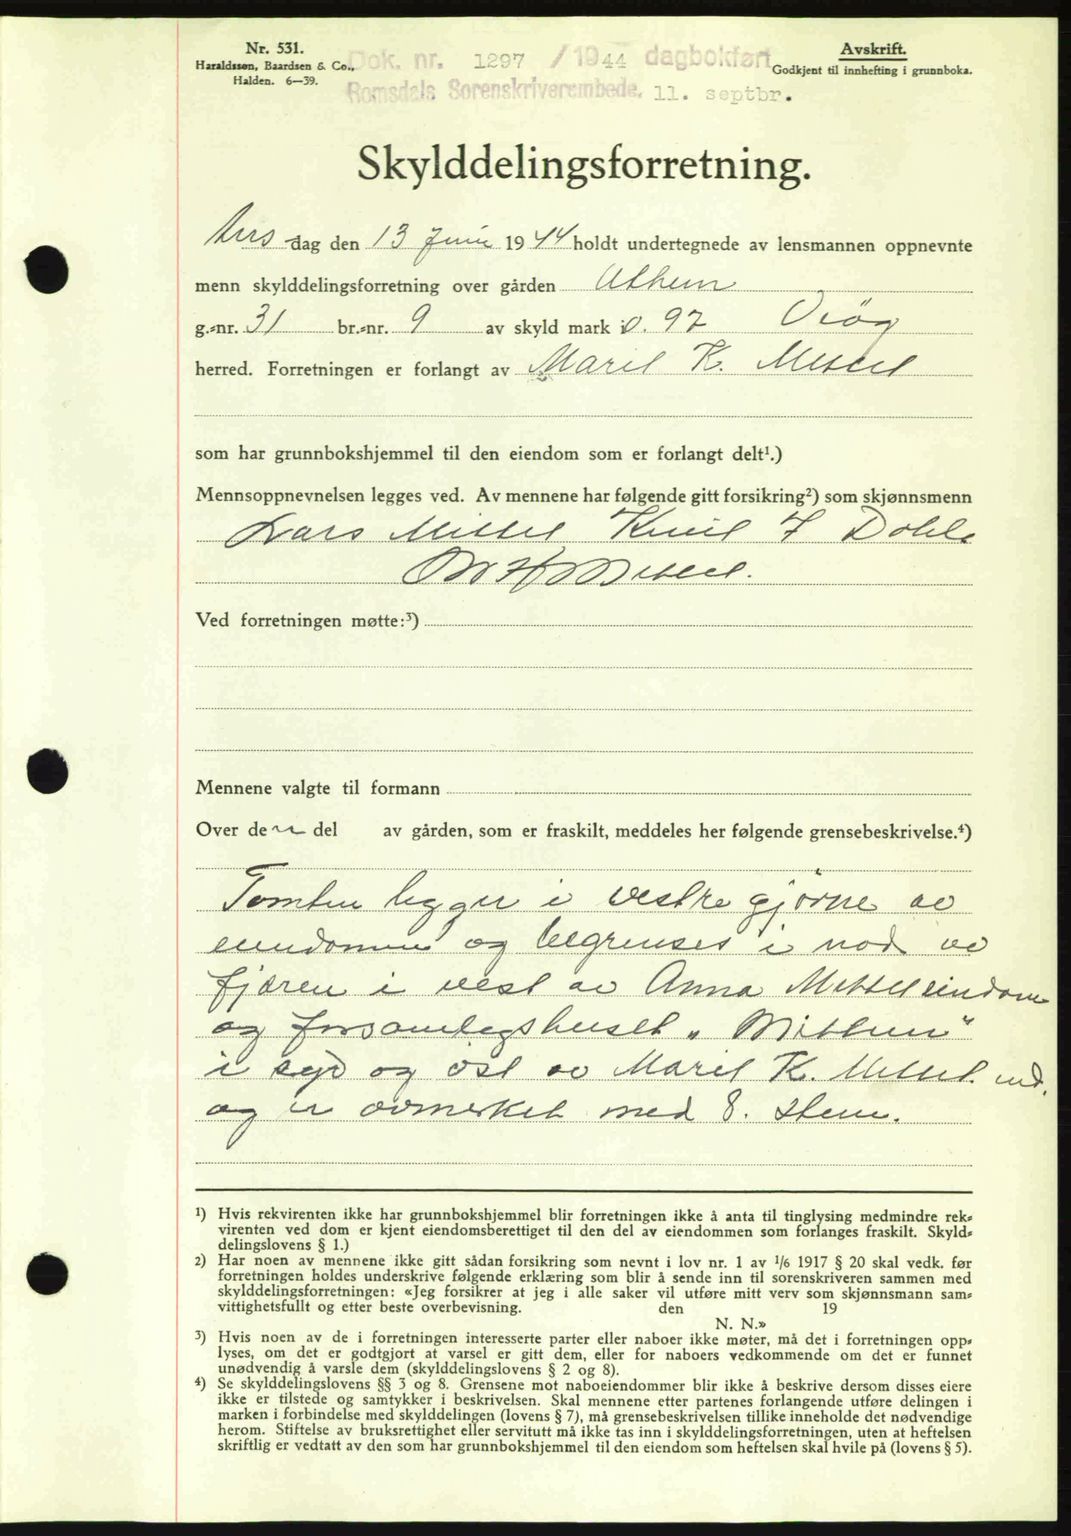 Nr. 531.
Haraldssøn, Baardsen & Co.,
Halden. 6—39.
Dok. nr. 1297 / 1944 dagbokført
Romsdals Sorenskriverembede, 11. septbr.
Avskrift.
Godkjent til innhefting i grunnboka.
Skylddelingsforretning.
dag den 13 Juni 1944 holdt undertegnede av lensmannen oppnevnte
menn skylddelingsforretning over gården Utheim
g.-nr. 31 br.-nr. 9 av skyld mark 0. 97
herred. Forretningen er forlangt av Marit K. Mittet
som har grunnbokshjemmel til den eiendom som er forlangt delt¹.)
Mennsoppnevnelsen legges ved. Av mennene har følgende gitt forsikring²) som skjønnsmenn
Lars Mittet Knut
Mittet.
Ved forretningen møtte:³)
Mennene valgte til formann
Over den del av gården, som er fraskilt, meddeles her følgende grensebeskrivelse.⁴)
Tomten ligger i vestre gjørne av
eiendommen og begrenses i nod av
fjæren i vest av Anna Mittet eiendom
og forsamlegshuset „ Mittun"
i syd og øst av Marit K. Mittet. eid.
og er avmerket med 8. stene.
¹) Hvis rekvirenten ikke har grunnbokshjemmel blir forretningen ikke å anta til tinglysing medmindre rek-
virenten ved dom er kjent eiendomsberettiget til den del av eiendommen som forlanges fraskilt. Skyld-
delingslovens § 1.)
²) Har noen av mennene ikke gitt sådan forsikring som nevnt i lov nr. 1 av 1/6 1917 § 20 skal vedk. før
forretningen holdes underskrive følgende erklæring som blir å sende inn til sorenskriveren sammen med
skylddelingsforretningen: «Jeg forsikrer at jeg i alle saker vil utføre mitt verv som skjønnsmann sam-
vittighetsfullt og etter beste overbevisning. den 19
N. N.»
³) Hvis noen av de i forretningen interesserte parter eller naboer ikke møter, må det i forretningen opp-
lyses, om det er godtgjort at varsel er gitt dem, eller for naboers vedkommende om det er funnet
unødvendig å varsle dem (skylddelingslovens § 2 og 8).
⁴) Se skylddelingslovens §§ 3 og 8. Grensene mot naboeiendommer blir ikke å beskrive dersom disses eiere
ikke er tilstede og samtykker i beskrivelsen. Skal mennene etter partenes forlangende utføre delingen i
marken i forbindelse med skylddelingen (lovens § 7), må grensebeskrivelsen tillike inneholde det nødvendige
herom. Stiftelse av bruksrettighet eller servitutt må ikke tas inn i skylddelingsforretningen, uten at heftelsen
skriftlig er vedtatt av den som har grunnbokshjemmel til den eiendom som heftelsen skal hvile på (lovens § 5).